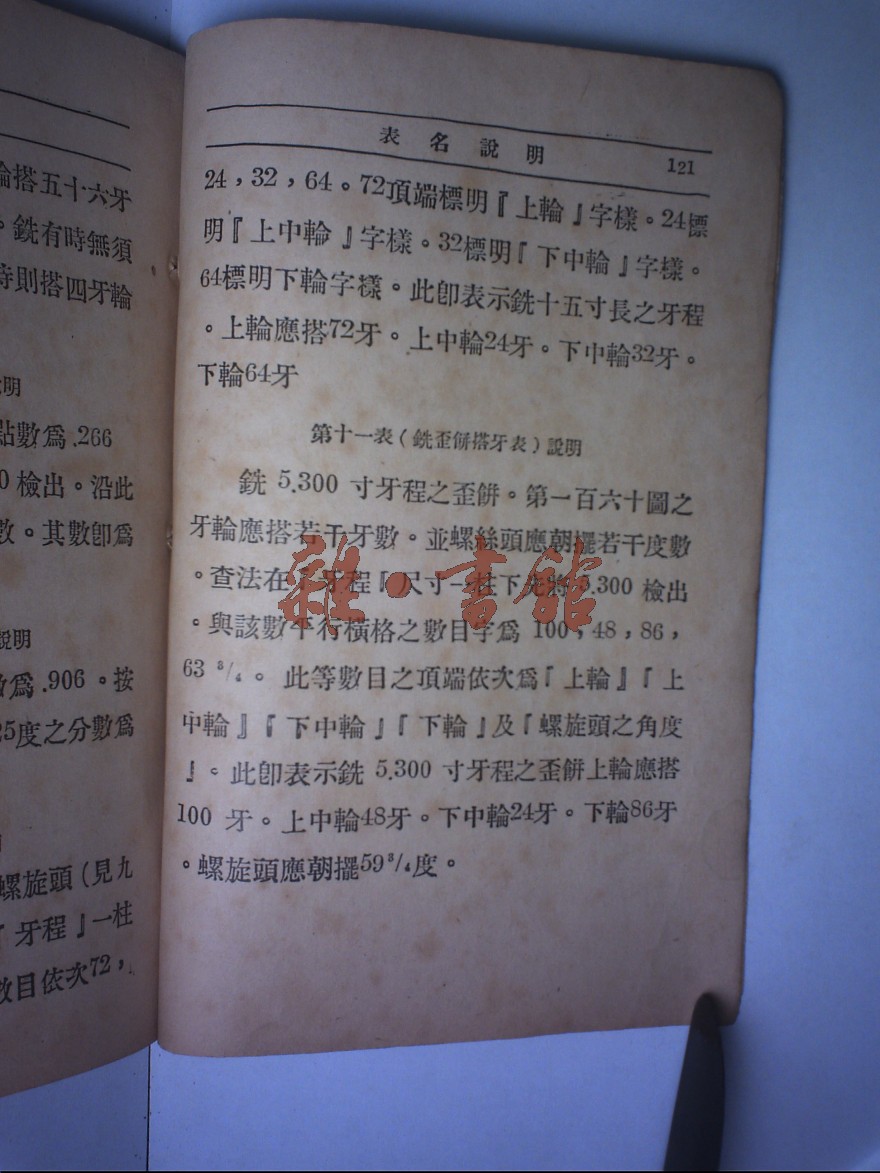 論搭五十六牙
。銑有時無須
時則搭四牙輪
說明
點數爲.266
0檢出。沿此
數。其數卽爲
說明
數爲.906。按
25度之分數爲
螺旋頭(見九
『牙程』一柱
數目依次72,
表名說明 121
24,32,64。72頂端標明『上輪』字樣。24標
明『上中輪』字樣。32標明『下中輪』字樣。
64標明下輪字樣。此卽表示銑十五寸長之牙程
。上輪應搭72牙。上中輪24牙。下中輪32牙。
下輪64牙
第十一表(銑歪餅搭牙表)說明
銑 5.300 寸牙程之歪餅。第一百六十圖之
牙輪應搭若干牙數。並螺絲頭應朝擺若干度數
。查法在『牙程『尺寸一柱下先將 5.300 檢出
。與該數平行橫格之數目字爲 100,48,86,
63 3/4。此等數目之頂端依次爲『上輪』『上
中輪』『下中輪』『下輪』及『螺旋頭之角度
』。此卽表示銑 5.300 寸牙程之歪餅上輪應搭
100 牙。上中輪48牙。下中輪24牙。下輪86牙
。螺旋頭應朝擺59 3/4度。
雜·書館